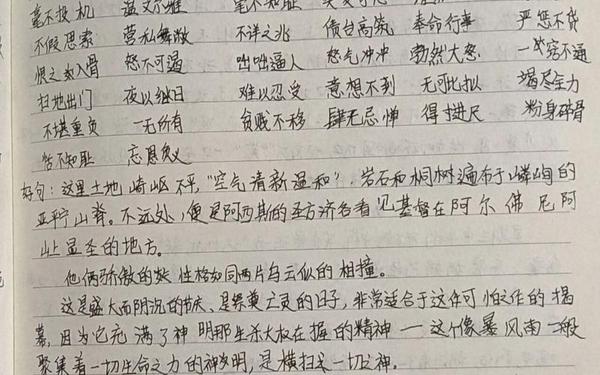 毫不投机 温文尔雅 毫不知耻
不假思索 营私舞弊 不详之兆 债台高筑 奉命行事 严惩不贷
恨之如入骨 怒不可遏 咄咄逼人 怒气冲冲 勃然大怒 一窍不通
扫地出门 夜以继日 难以忍受 意想不到 无可比拟 竭尽全力
不堪重负 一无所有 贫贱不移 肆无忌惮 得寸进尺 粉身碎骨
恬不知耻 忘恩负义
好句:这里土地崎岖不平,"空气清新温和",岩石和桐树遍布于嶙峋的
亚平宁山脊。不远处,便是阿西斯的圣方济各看见基督在阿尔佛尼阿
山上显圣的地方。
他俩骄傲的 性格如同两片乌云似的相撞。
这是盛大而阴沉的节庆,是祭奠亡灵的日子,非常适合于这件可怕之作的揭
幕,因为它充满了神明那生杀大权在握的精神——这个像暴风雨一般
聚集着一切生命之力的神明,是横扫一切之神。